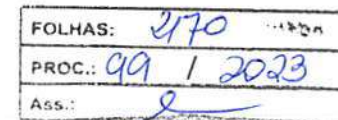 FOLHAS: 2170
PROC.: 99 / 2023
Ass.: